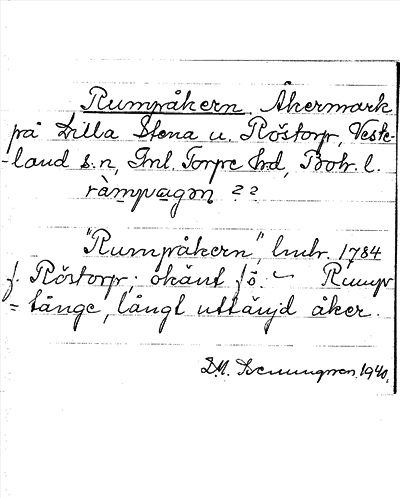 Rumpåkern, Åkermark
på Lilla Stena u. Röstorp, Veste-
-land s:n, Inl. Torpe hd, Boh. l.
ràmpagɔn ? ?
"Rumpåkern", lmtr. 1784
f. Röstorp; okänt f ö. — Rump
= tånge, långt uttänjd åker.
1940.